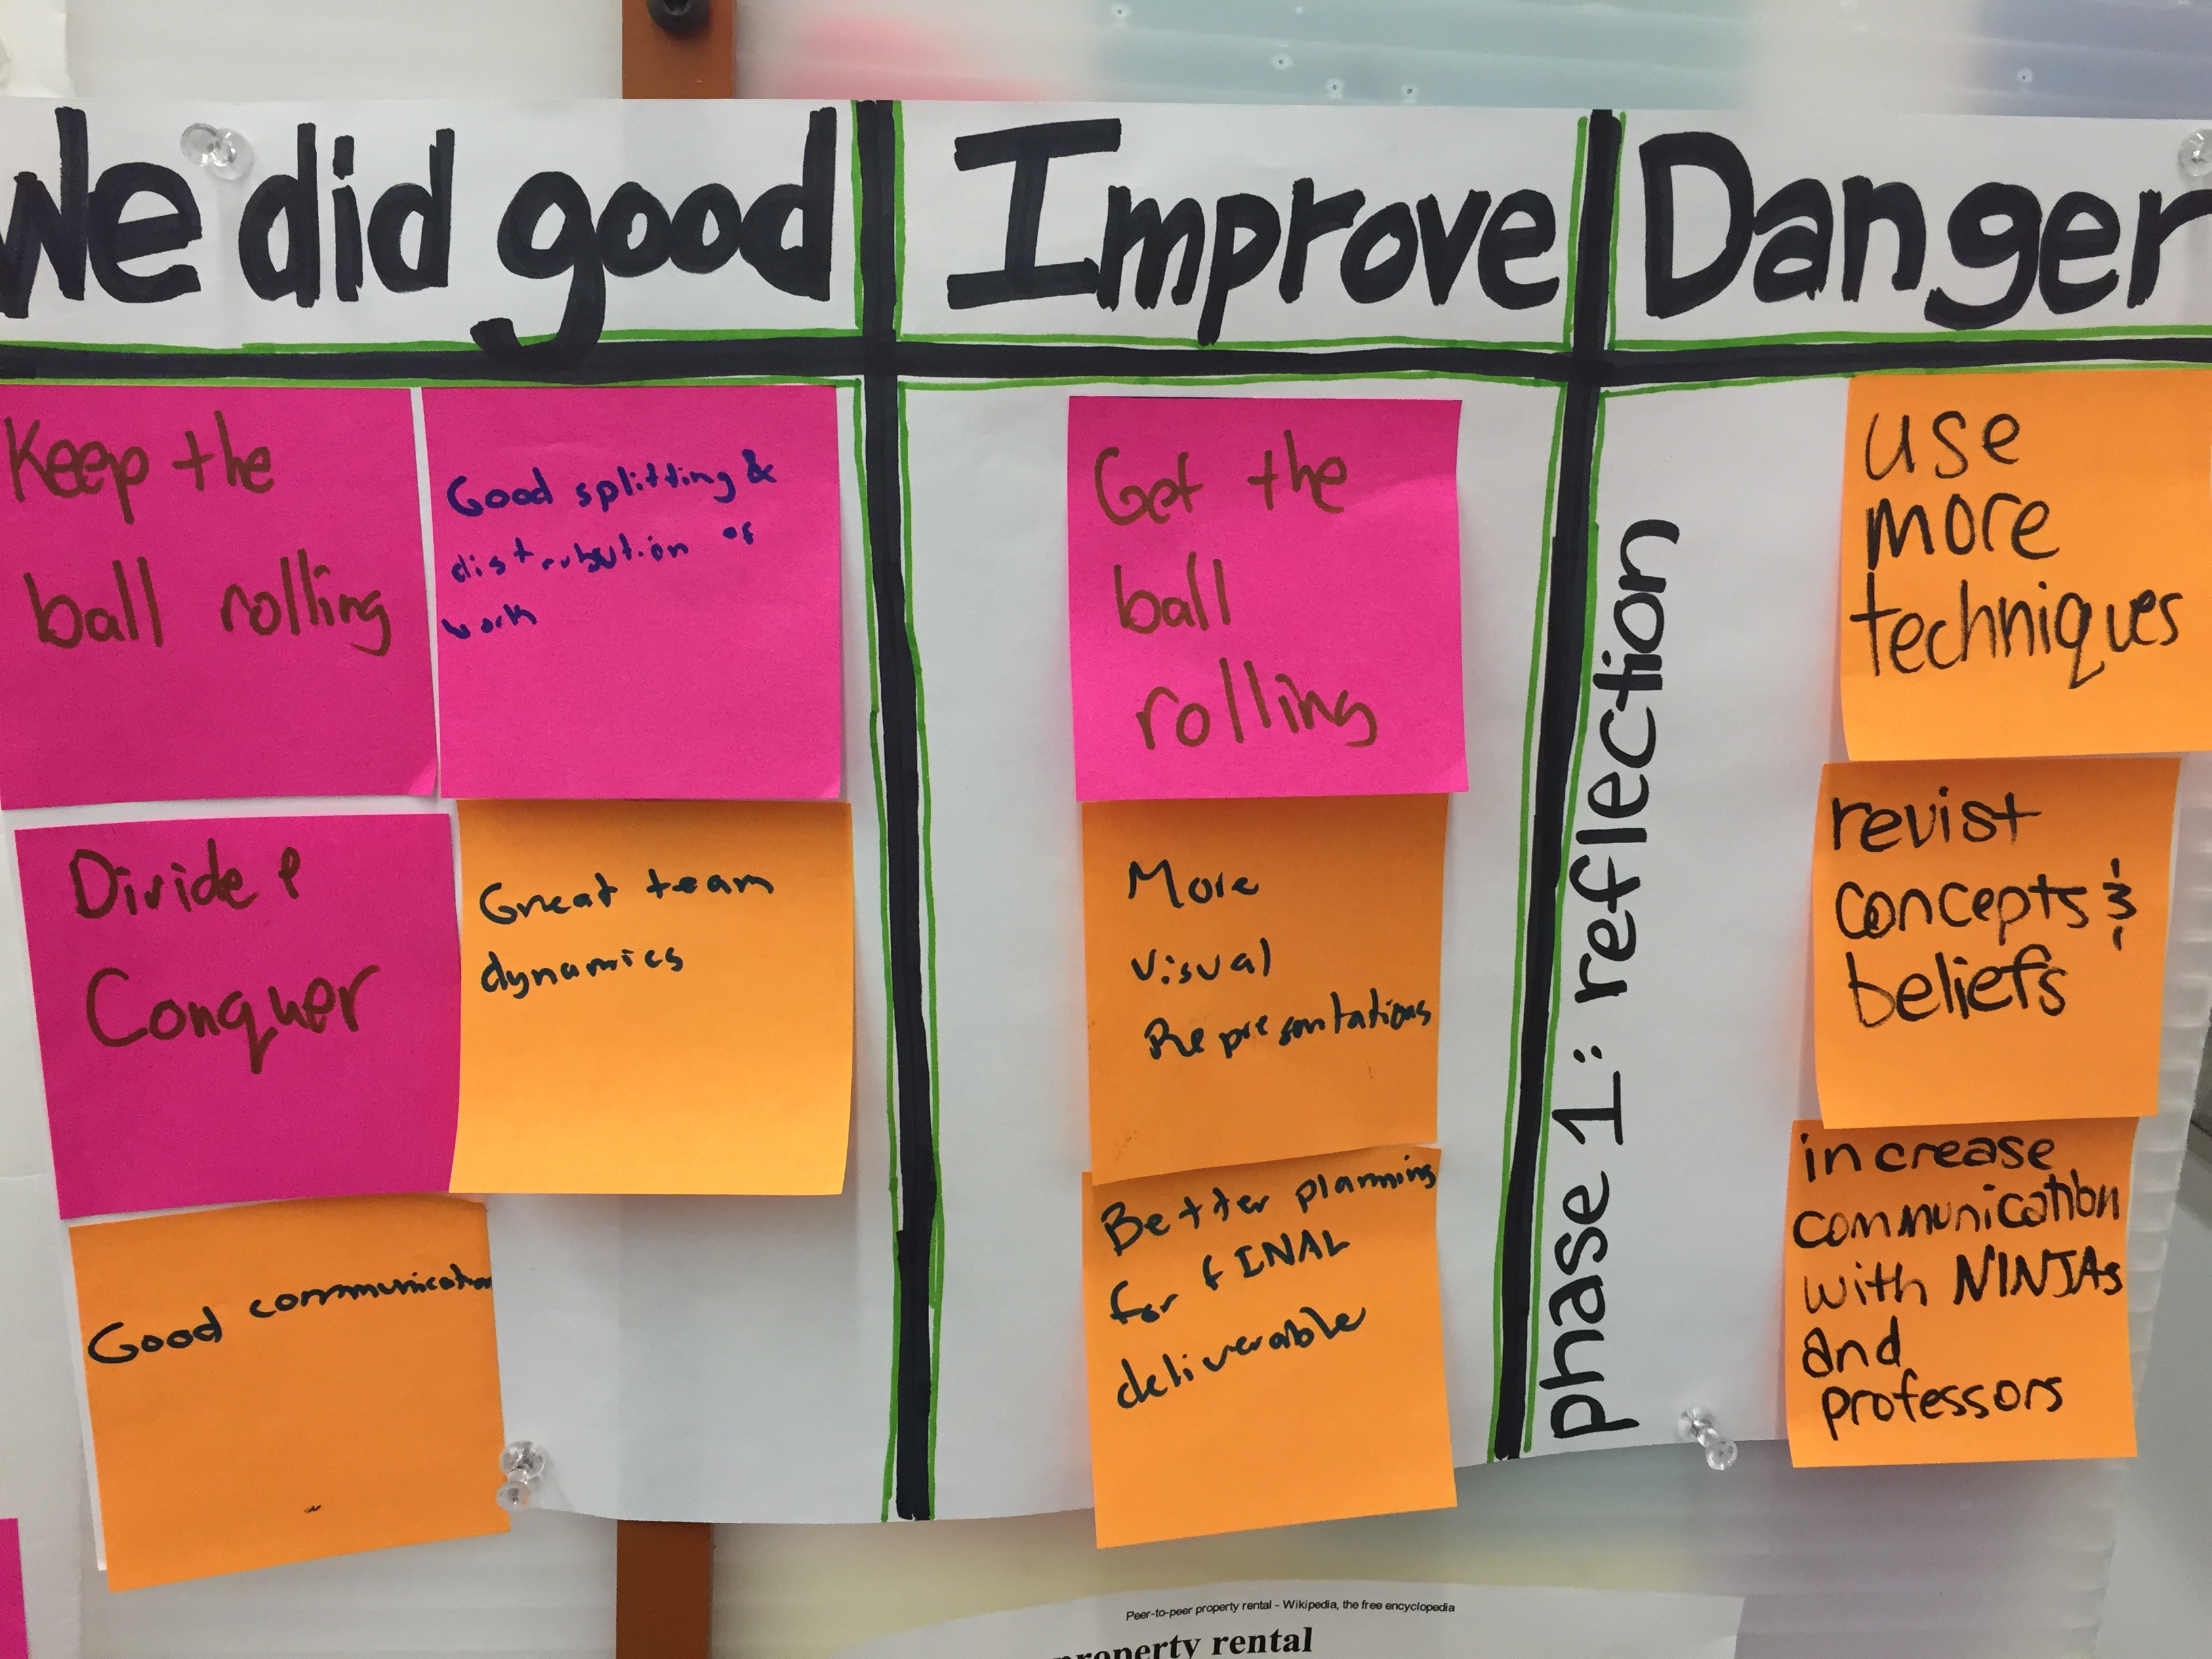 We did good
Improve
Danger
Keep the
ball rolling
Good splitting &
distribution of
work
Divide &
Conquer
Great team
dynamics
Good communication
Get the
ball
rolling
More
visual
Representations
Better planning
for fINAL
deliverable
phase 1: reflection
use
more
techniques
revist
concepts &
beliefs
increase
communication
with NINJAs
and
professors
Peer-to-peer property rental - Wikipedia, the free encyclopedia
property rental